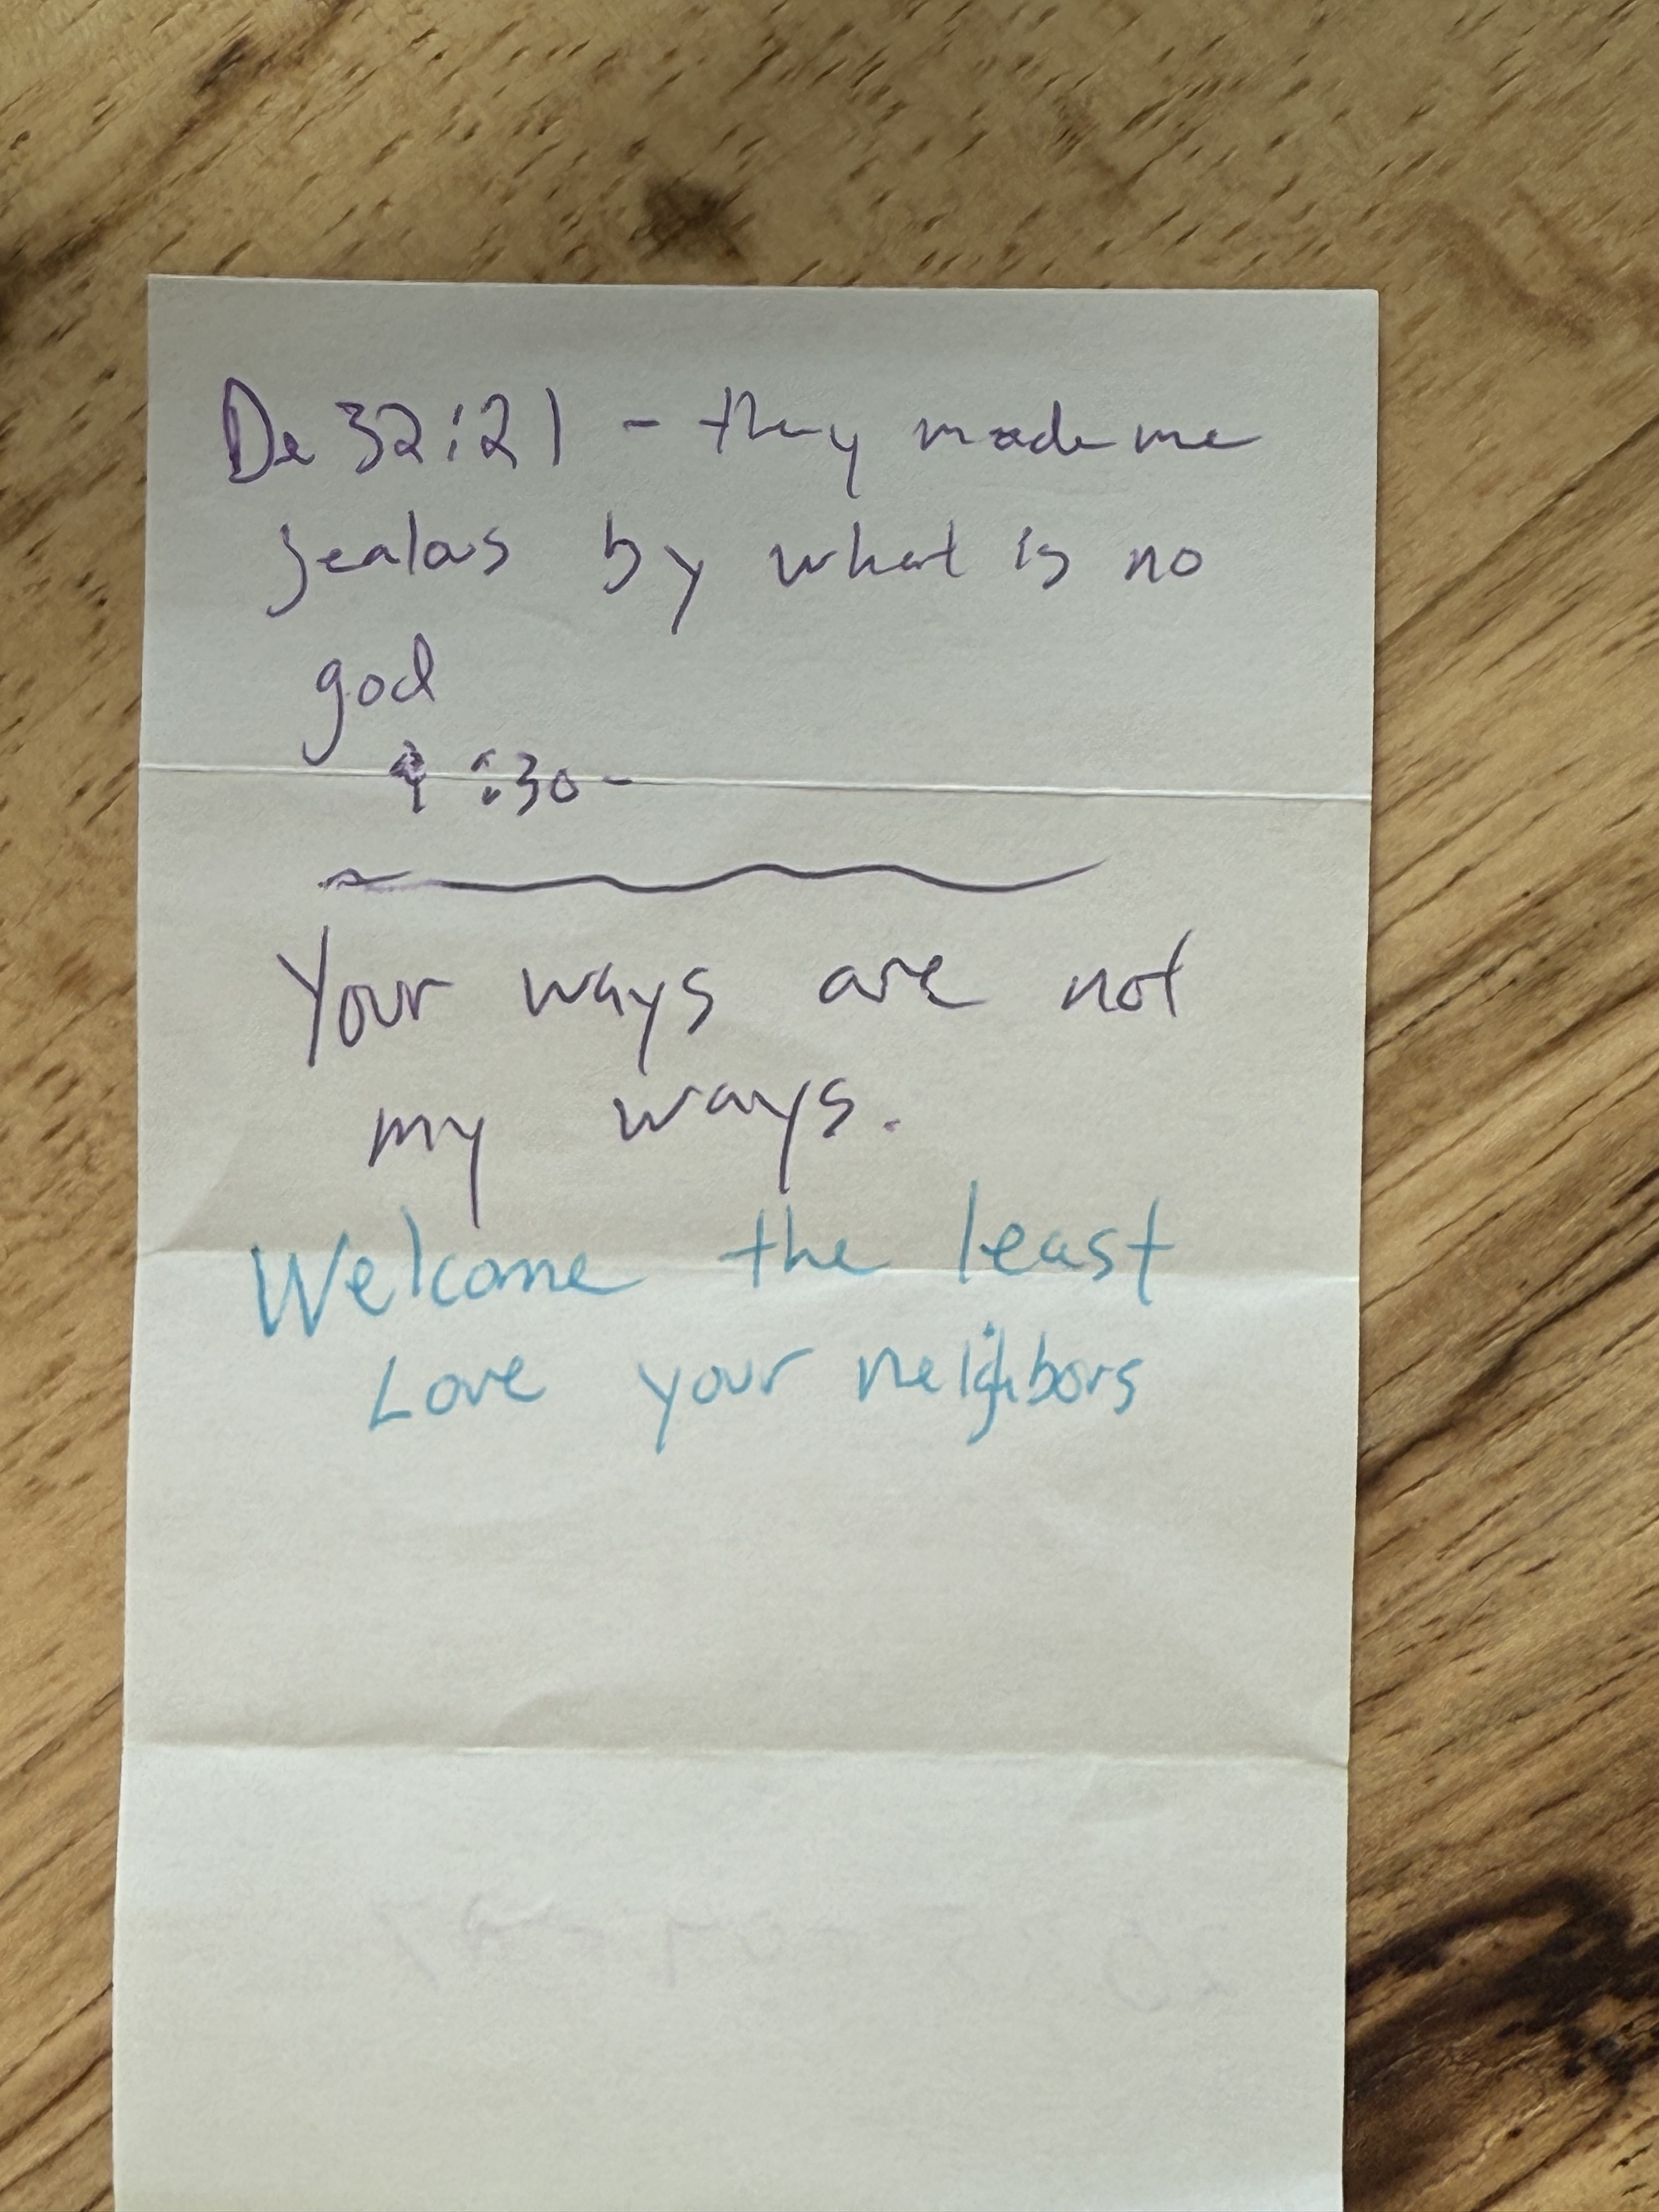 De 32:21 - they made me
jealous by what is no
god
:30-
Your ways are not
my ways.
Welcome the least
Love your neighbors